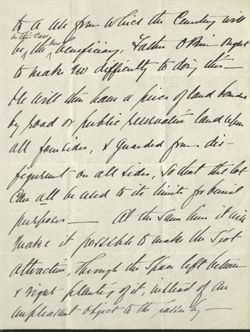 to a use from which the Cemetery will
in this case
be the beneficiary. Father O'Brien ought
to make no difficulty to doing this—
He will then have a piece of land bounded
by road or public reservation land upon
all four sides, & guarded from dis-
figurement on all sides, so that this lot
can all be used to its limits for burial
purposes — At the same time it will
make it possible to make the spot
attractive, through the space left between
& right planting of it, instead of an
unpleasant object to the passer by —